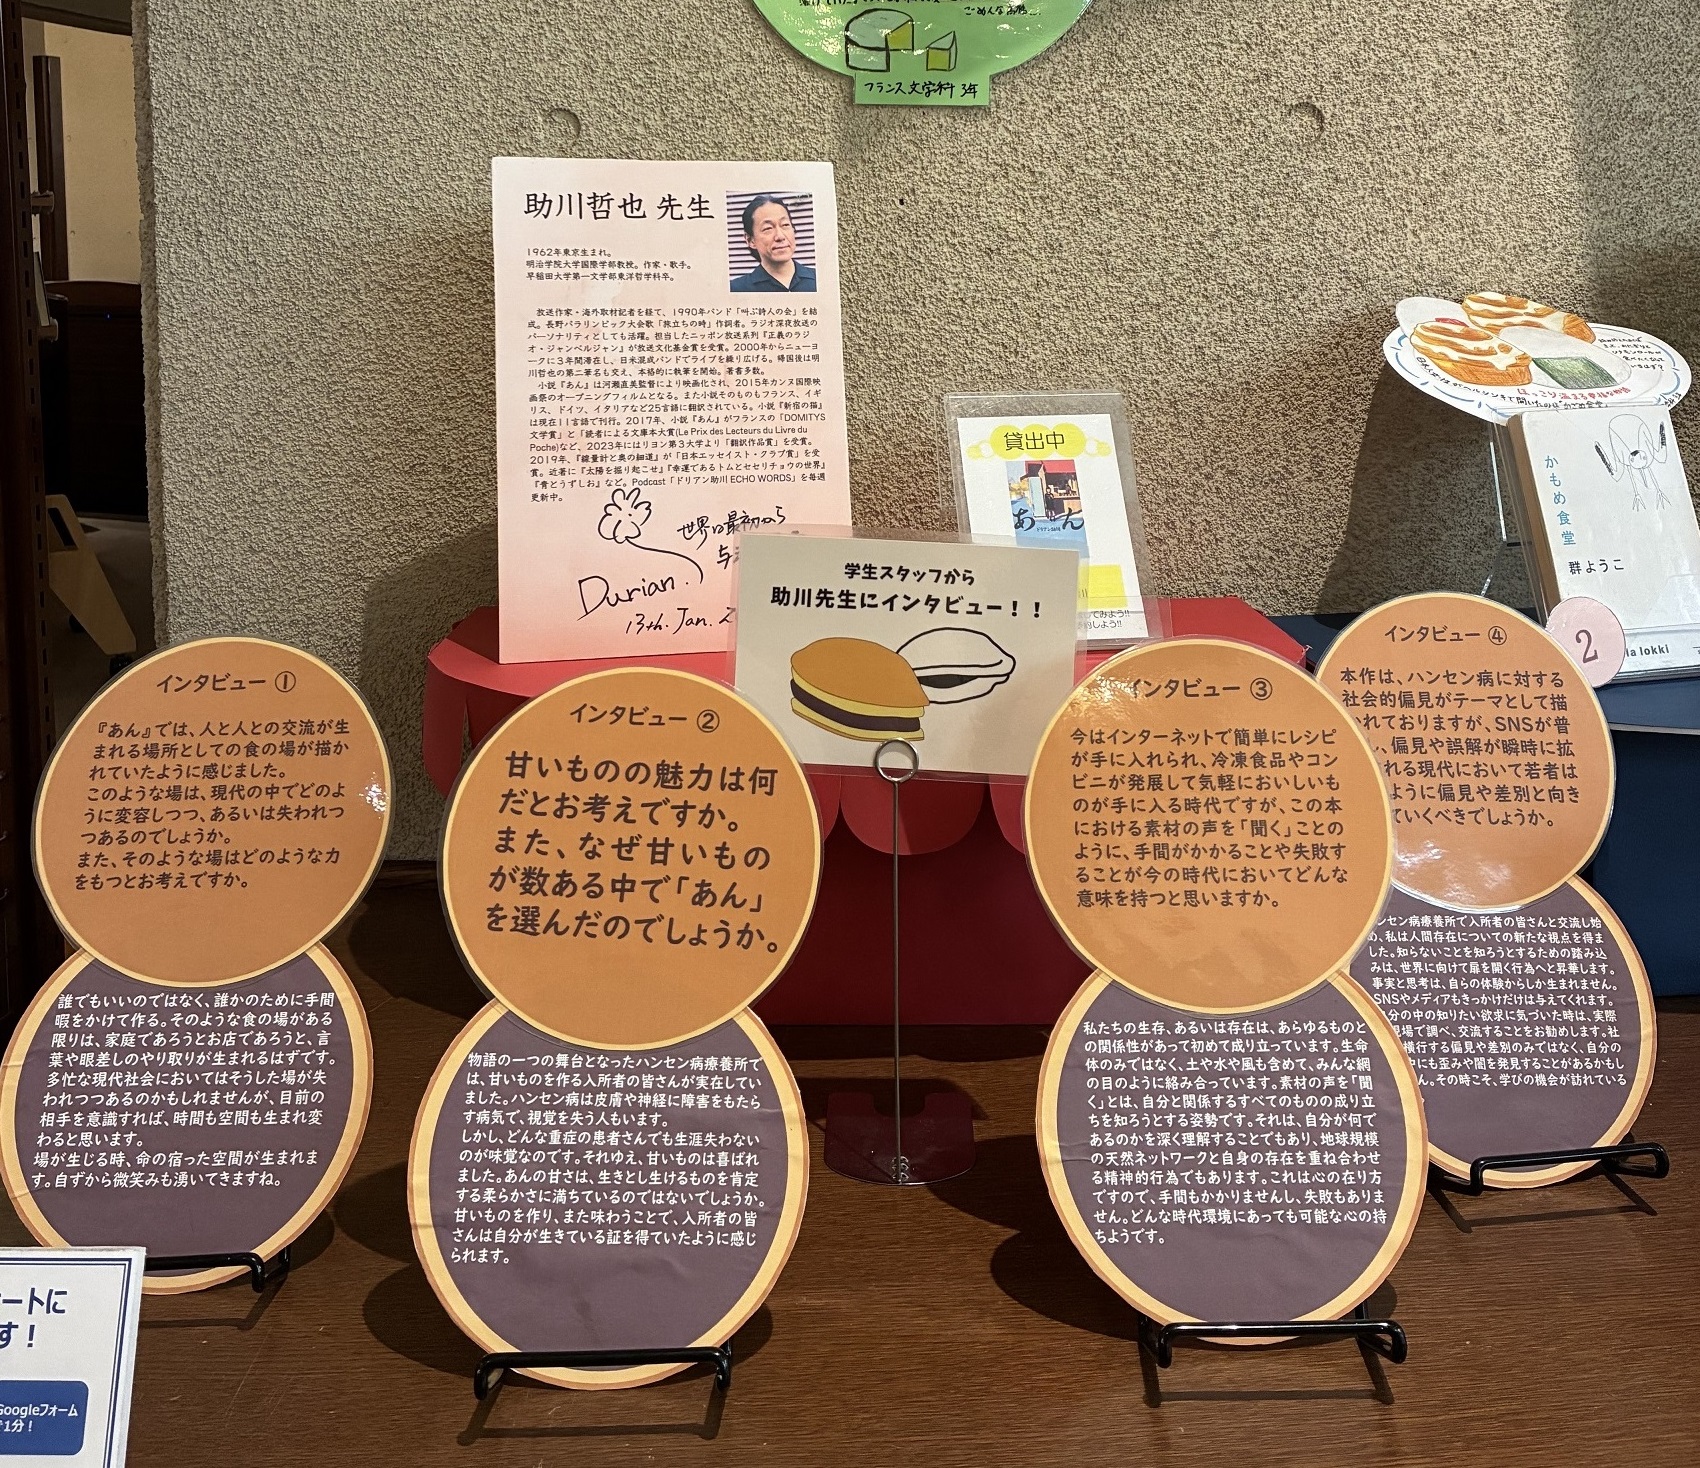 ごめんな
フランス文学科 3年
助川哲也 先生
1962年東京生まれ。
明治学院大学国際学部教授。作家・歌手。
早稲田大学第一文学部東洋哲学科卒。
放送作家・海外取材記者を経て、1990年バンド「叫ぶ詩人の会」を結
成。長野パラリンピック大会歌「旅立ちの時」作詞者。ラジオ深夜放送の
パーソナリティとしても活躍。担当したニッポン放送系列『正義のラジ
オ・ジャンベルジャン』が放送文化基金賞を受賞。2000年からニューヨ
ークに3年間滞在し、日米混成バンドでライブを繰り広げる。帰国後は明
川哲也の第二筆名も交え、本格的に執筆を開始。著書多数。
小説『あん』は河瀬直美監督により映画化され、2015年カンヌ国際映
画祭のオープニングフィルムとなる。また小説そのものもフランス、イギ
リス、ドイツ、イタリアなど25言語に翻訳されている。小説『新宿の猫』
は現在11言語で刊行。2017年、小説『あん』がフランスの「DOMITYS
文学賞」と「読者による文庫本大賞(Le Prix des Lecteurs du Livre du
Poche)など、2023年にはリヨン第3大学より「翻訳作品賞」を受賞。
2019年、『線量計と奥の細道』が「日本エッセイスト・クラブ賞」を受
賞。近著に『太陽を掘り起こせ』『幸運であるトムとセセリチョウの世界』
『青とうずしお』など。Podcast「ドリアン助川 ECHO WORDS」を毎週
更新中。
世界は最初から
与
Durian.
13th. Jan. 2
貸出中
あん
ドリアン助川
てみよう!!
しよう!!
学生スタッフから
助川先生にインタビュー！！
ほっこり温まる
かもめ食堂
群ようこ
2
la lokki
インタビュー ①
『あん』では、人と人との交流が生
まれる場所としての食の場が描か
れていたように感じました。
このような場は、現代の中でどのよ
うに変容しつつ、あるいは失われつ
つあるのでしょうか。
また、そのような場はどのような力
をもつとお考えですか。
誰でもいいのではなく、誰かのために手間
暇をかけて作る。そのような食の場がある
限りは、家庭であろうとお店であろうと、言
葉や眼差しのやり取りが生まれるはずです。
多忙な現代社会においてはそうした場が失
われつつあるのかもしれませんが、目前の
相手を意識すれば、時間も空間も生まれ変
わると思います。
場が生じる時、命の宿った空間が生まれま
す。自ずから微笑みも湧いてきますね。
インタビュー ②
甘いものの魅力は何
だとお考えですか。
また、なぜ甘いもの
が数ある中で「あん」
を選んだのでしょうか。
物語の一つの舞台となったハンセン病療養所で
は、甘いものを作る入所者の皆さんが実在してい
ました。ハンセン病は皮膚や神経に障害をもたら
す病気で、視覚を失う人もいます。
しかし、どんな重症の患者さんでも生涯失わない
のが味覚なのです。それゆえ、甘いものは喜ばれ
ました。あんの甘さは、生きとし生けるものを肯定
する柔らかさに満ちているのではないでしょうか。
甘いものを作り、また味わうことで、入所者の皆
さんは自分が生きている証を得ていたように感じ
られます。
インタビュー ③
今はインターネットで簡単にレシピ
が手に入れられ、冷凍食品やコン
ビニが発展して気軽においしいも
のが手に入る時代ですが、この本
における素材の声を「聞く」ことの
ように、手間がかかることや失敗す
ることが今の時代においてどんな
意味を持つと思いますか。
私たちの生存、あるいは存在は、あらゆるものと
の関係性があって初めて成り立っています。生命
体のみではなく、土や水や風も含めて、みんな網
の目のように絡み合っています。素材の声を「聞
く」とは、自分と関係するすべてのものの成り立
ちを知ろうとする姿勢です。それは、自分が何で
あるのかを深く理解することでもあり、地球規模
の天然ネットワークと自身の存在を重ね合わせ
る精神的行為でもあります。これは心の在り方
ですので、手間もかかりませんし、失敗もありま
せん。どんな時代環境にあっても可能な心の持
ちようです。
インタビュー ④
本作は、ハンセン病に対する
社会的偏見がテーマとして描
かれておりますが、SNSが普
、偏見や誤解が瞬時に拡
れる現代において若者は
ように偏見や差別と向き
ていくべきでしょうか。
ンセン病療養所で入所者の皆さんと交流し始
め、私は人間存在についての新たな視点を得ま
した。知らないことを知ろうとするための踏み込
みは、世界に向けて扉を開く行為へと昇華します。
事実と思考は、自らの体験からしか生まれません。
SNSやメディアもきっかけだけは与えてくれます。
分の中の知りたい欲求に気づいた時は、実際
現場で調べ、交流することをお勧めします。社
横行する偏見や差別のみではなく、自分の
にも歪みや闇を発見することがあるかもし
ん。その時こそ、学びの機会が訪れている
ートに
す！
Googleフォーム
1分！